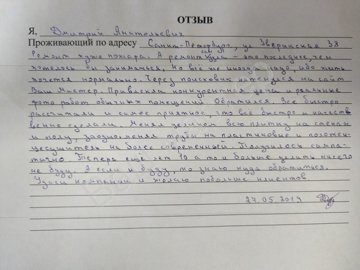 ОТЗЫВ
Я, Дмитрий Анатольевич
Проживающий по адресу Санкт-Петербург, ул Зверинская 38
Ремонт хуже пожара. А ремонт - это последнее, чем
хотелось бы заниматься. Но все же иногда надо, ибо жить
хочется нормально. Через поисковик наткнулся на сайт
Ваш Мастер. Привлекли конкурентная цена и реальные
фото работ обычных помещений. Обратился. Все быстро
рассчитали и самое приятное, что все быстро и качест
венно сделали. Меняли плитку на стенах
и полу, заодно меняя трубы на пластиковые и полотен
цесушитель на более современный. Получилось симпа-
тично. Теперь еще лет 10 а то и больше делать ничего
не буду. А если и буду, то знаю куда обратиться.
Удачи компании и желаю побольше клиентов.
27.05.2019